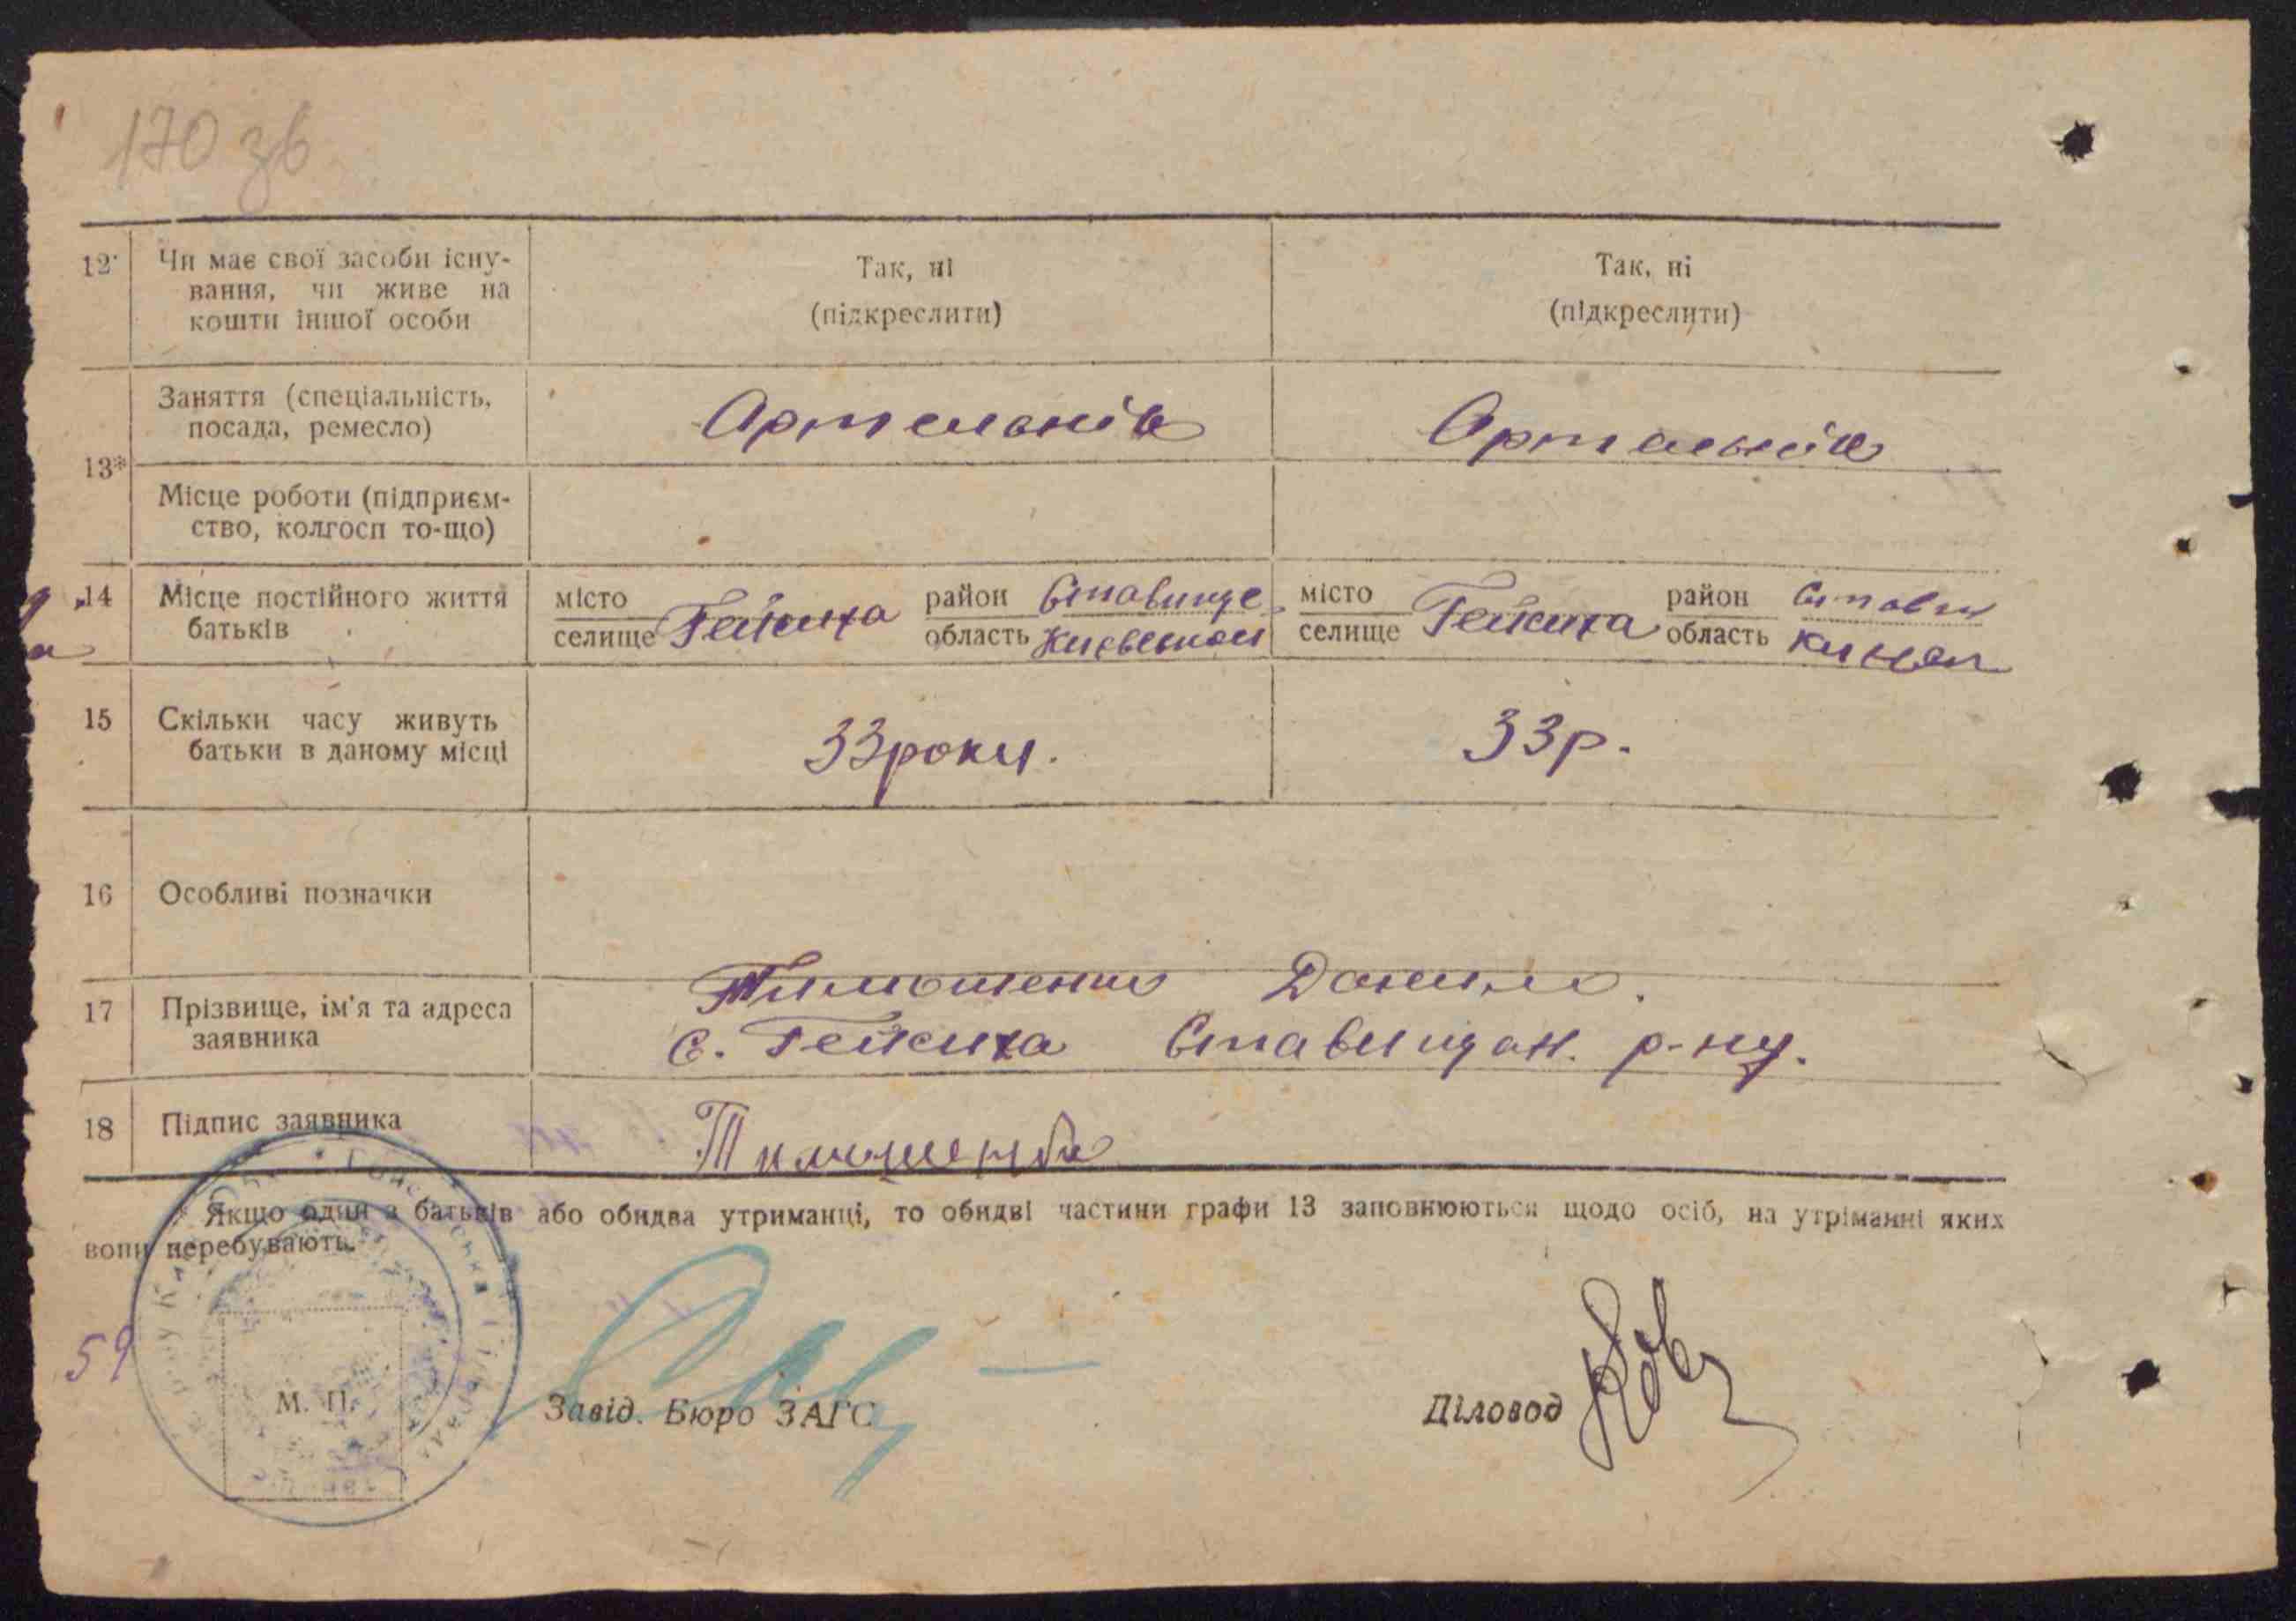 170 зв
12 Чи має свої засоби існу- Так, ні Так, ні
вання, чи живе на (підкреслити) (підкреслити)
кошти іншої особи
Заняття (спеціальність, Артельнів Артельнів
посада, ремесло)
13*
Місце роботи (підприєм-
ство, колгосп то-що)
14 Місце постійного життя місто район Ставище місто район Ставищ
батьків селище Гейсиха область селище Гейсиха область
15 Скільки часу живуть 33 роки. 33 р.
батьки в даному місці
16 Особливі позначки
Тимошенко Данило.
17 Прізвище, ім'я та адреса
заявника с. Гейсиха Ставищан. р-ну.
18 Підпис заявника Тимошенко
Якщо один з батьків або обидва утриманці, то обидві частини графи 13 заповнюються щодо осіб, на утріманні яких
вони перебувають.
59
М. П. Завід. Бюро ЗАГС Діловод